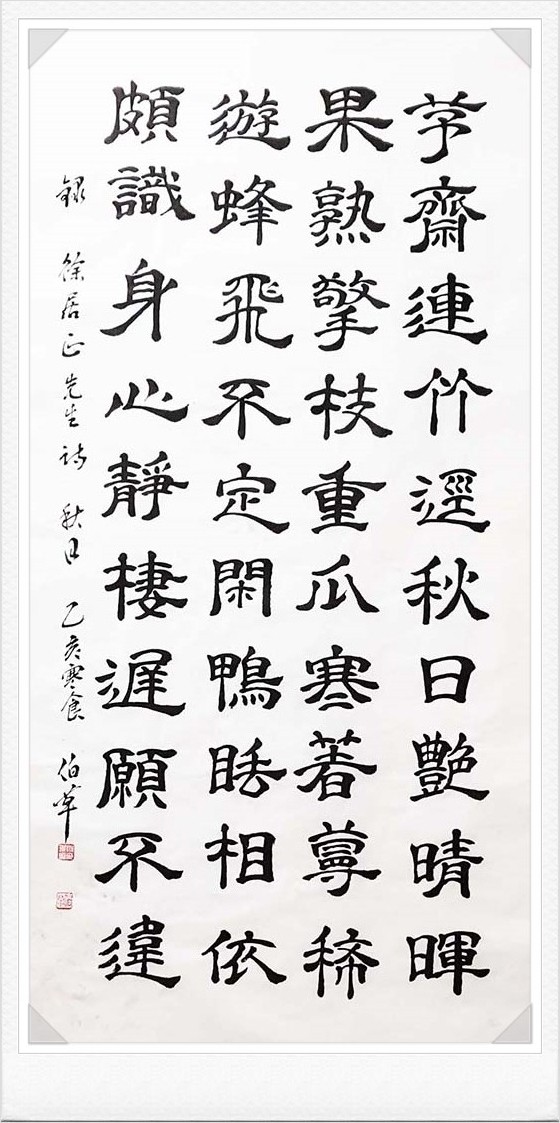 茅齋連竹逕秋日艶晴暉
果熟擎枝重瓜寒著蔓稀
遊蜂飛不定閑鴨睡相依
頗識身心靜棲遲願不違
錄 徐居正先生詩 秋日 乙亥寒食 伯草